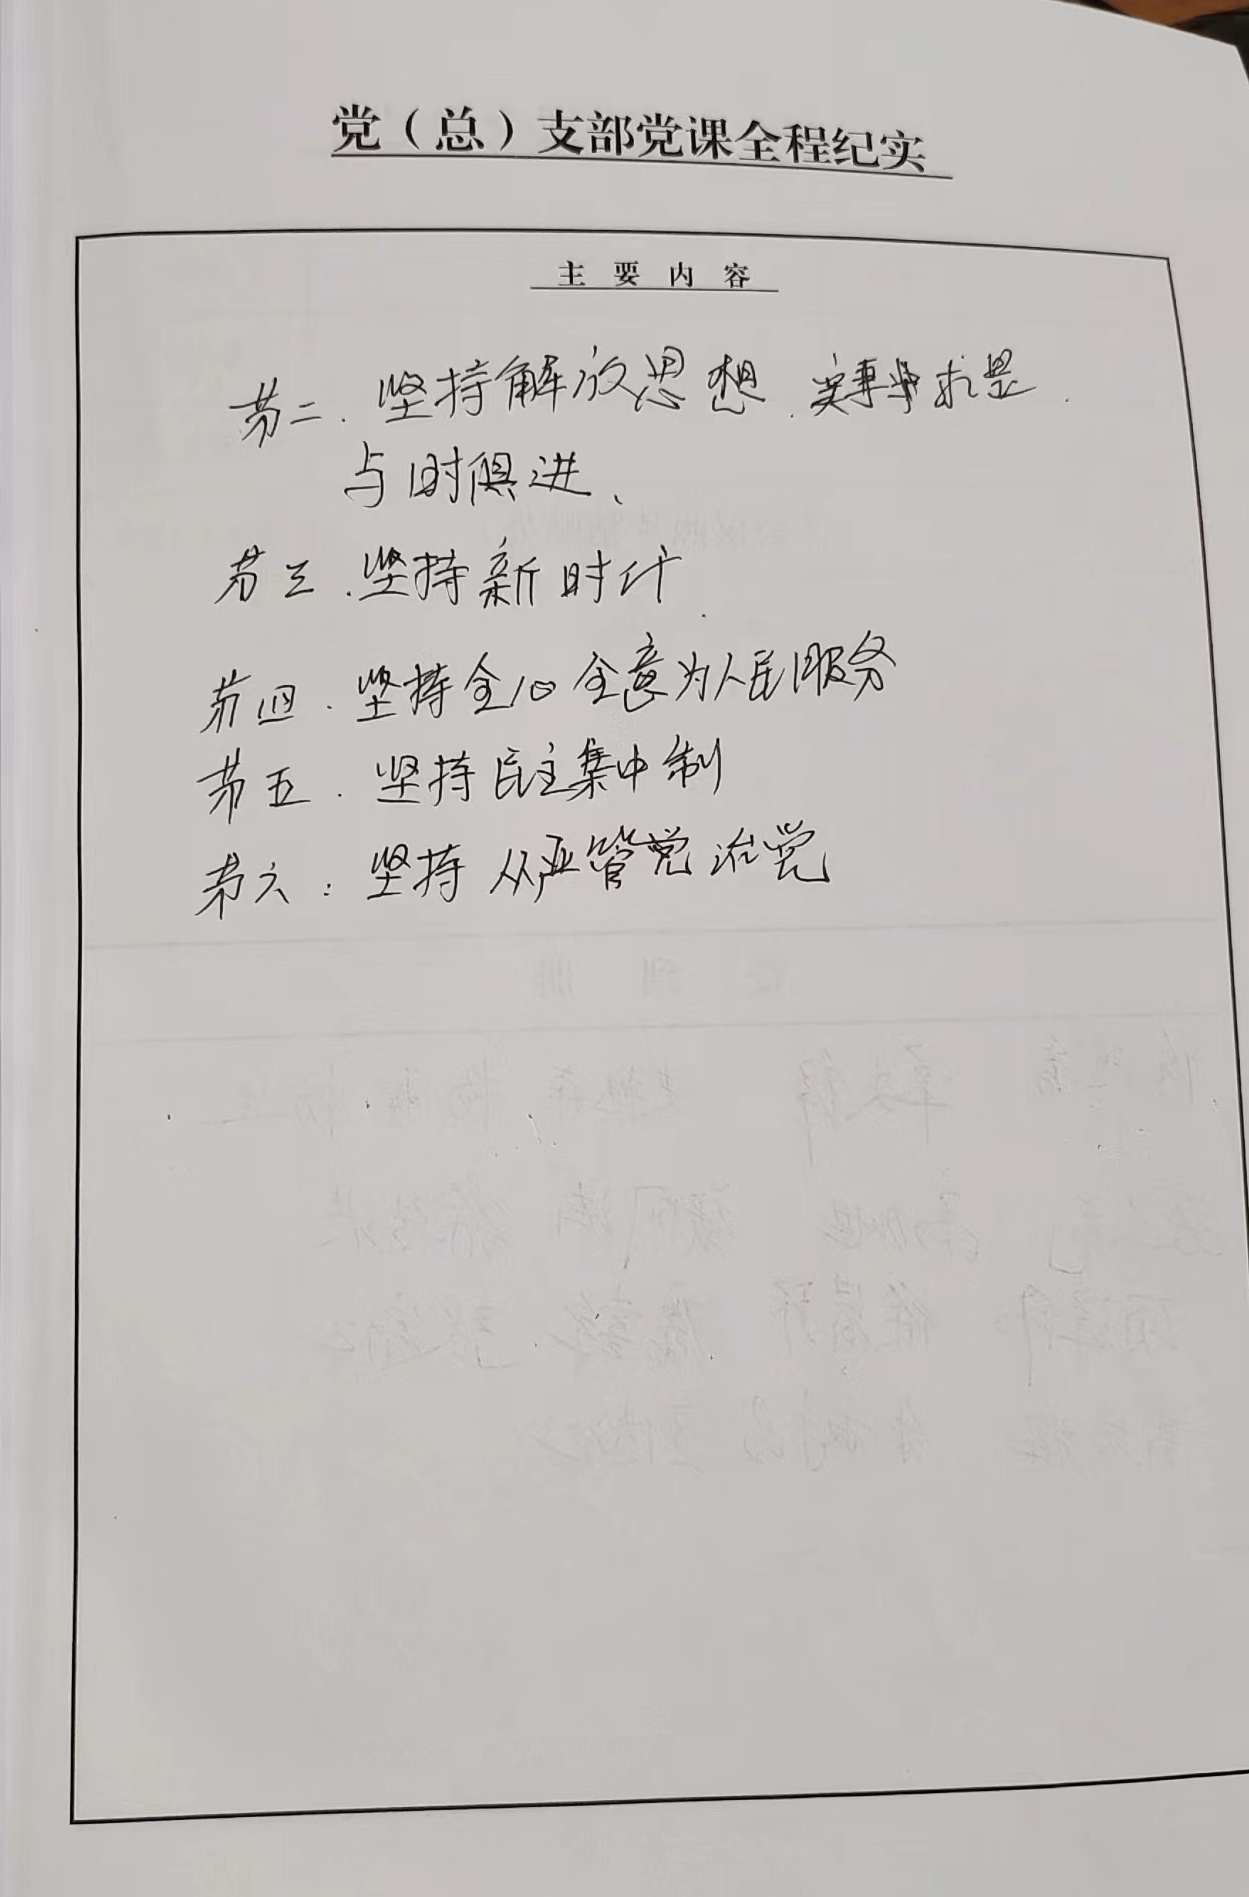 党（总）支部党课全程纪实
主要内容
第二．坚持解放思想．实事求是．
与时俱进、
第三．坚持新时代
第四．坚持全心全意为人民服务
第五．坚持民主集中制
第六：坚持从严管党治党